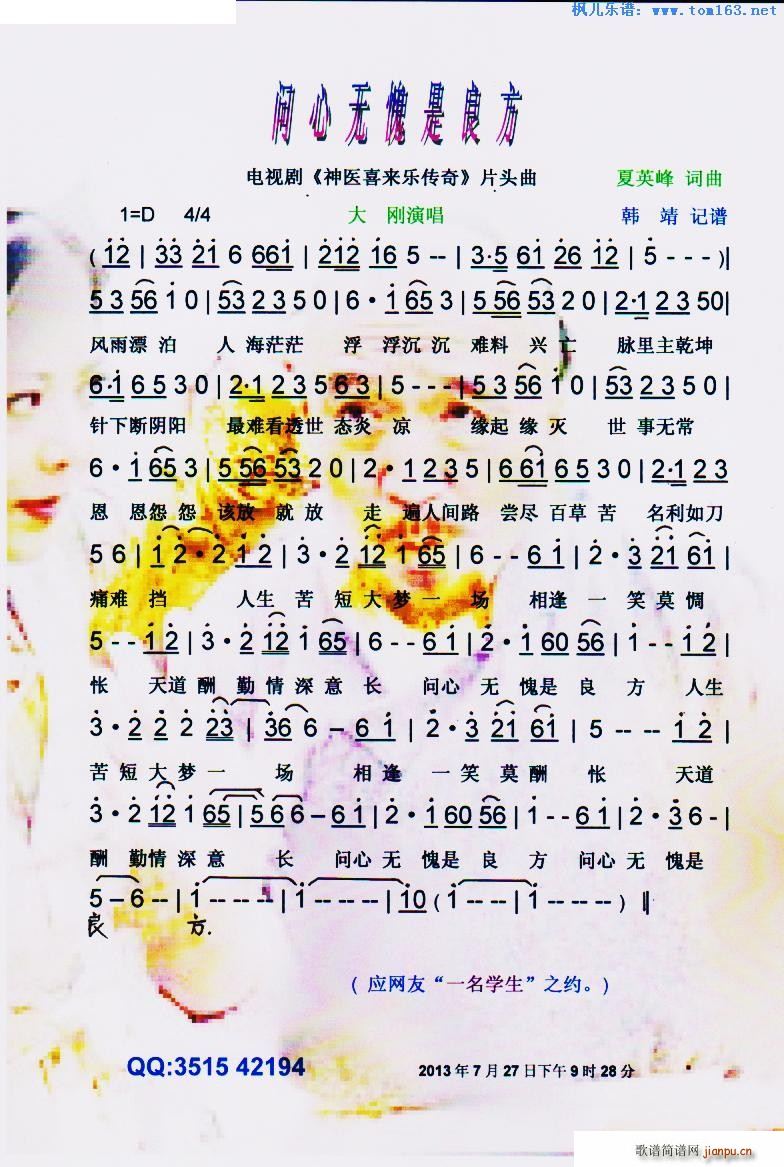 枫儿乐谱：www.tom163.net
问心无愧是良方
电视剧《神医喜来乐传奇》片头曲 夏英峰 词曲
1=D 4/4 大 刚演唱 韩 靖 记谱
( 12 | 33 21 6 661 | 212 16 5 -- | 3·5 61 26 12 | 5 --- )|
53 56 1 0 | 53 2 3 5 0 | 6·1 65 3 | 5 56 53 2 0 | 2·1 2 3 50 |
风雨漂泊 人海茫茫 浮 浮沉沉 难料 兴亡 脉里主乾坤
6·1 6 5 3 0 | 2·1 2 3 5 6 3 | 5 --- | 5 3 56 1 0 | 53 2 3 5 0 |
针下断阴阳 最难看透世态炎 凉 缘起缘灭 世事无常
6·1 65 3 | 5 56 53 2 0 | 2·1 2 3 5 | 6 61 6 5 3 0 | 2·1 2 3
恩 恩怨怨 该放 就放 走 遍人间路 尝尽百草苦 名利如刀
5 6 | 1 2·2 1 2 | 3·2 12 1 65 | 6 -- 6 1 | 2·3 21 61 |
痛难 挡 人生 苦 短大梦一 场 相逢 一 笑莫惆
5 -- 1 2 | 3·2 12 1 65 | 6 -- 6 1 | 2·1 60 56 | 1 -- 1 2 |
怅 天道酬 勤情深意长 问心 无 愧是 良 方 人生
3·2 2 2 23 | 36 6 - 6 1 | 2·3 21 61 | 5 -- -- 1 2 |
苦短大梦一 场 相逢 一笑莫酬 怅 天道
3·2 12 1 65 | 5 6 6 - 6 1 | 2·1 60 56 | 1 -- 6 1 | 2·3 6 - |
酬 勤情深意 长 问心无 愧是 良 方 问心无 愧是
5 - 6 -- | 1 -- -- | 1 -- -- | 10 ( 1 -- -- | 1 -- -- ) ||
良 方.
( 应网友“一名学生”之约。)
QQ:3515 42194 2013年7月27日下午9时28分
歌谱简谱网 jianpu.cn